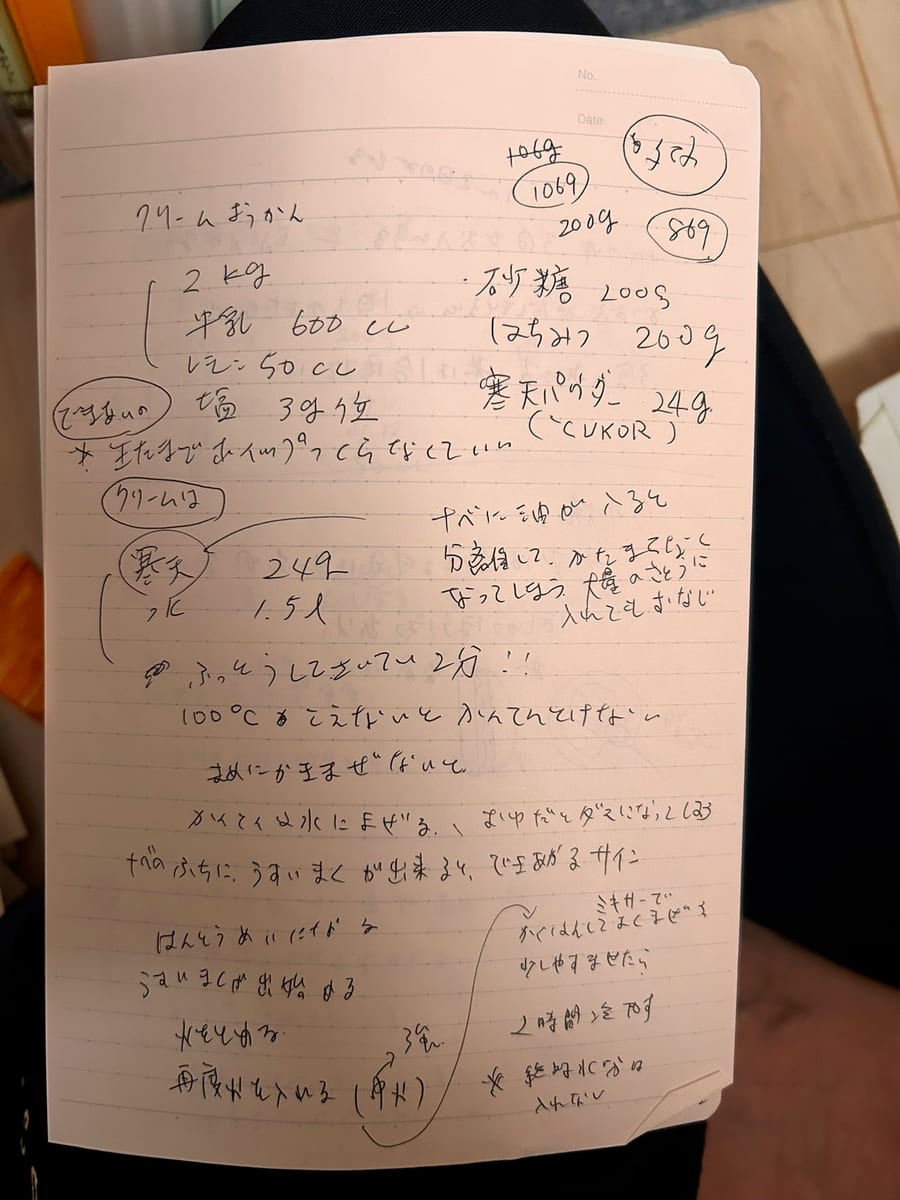 No.
Date
106g
106g
200g
86g
クリームようかん
2kg
牛乳 600cc
レモン 50cc
塩 3g位
・砂糖 200g
はちみつ 200g
寒天パウダー 24g
(CUKOR)
できないの
※ 生たまでホイップつくらなくていい
クリームは
寒天 24g
水 1.5ℓ
ナベに油が入ると
分離して、かたまらなく
なってしまう 大量のさとうに
入れてもおなじ
ふっとうしてさいてい2分!!
100℃をこえないとかんてんとけない
まめにかきまぜないと
かんてんは水にまぜる、おゆだとダマになってしまう
ナベのふちに、うすいまくが出来ると、できあがるサイン
はんとうめいになる
うすいまくが出始める
火をとめる
再度火を入れる (中火)
強
ミキサーで
かくはんしてよくまぜる
少しやすませたら
2時間冷やす
※ 絶対水分は
入れない